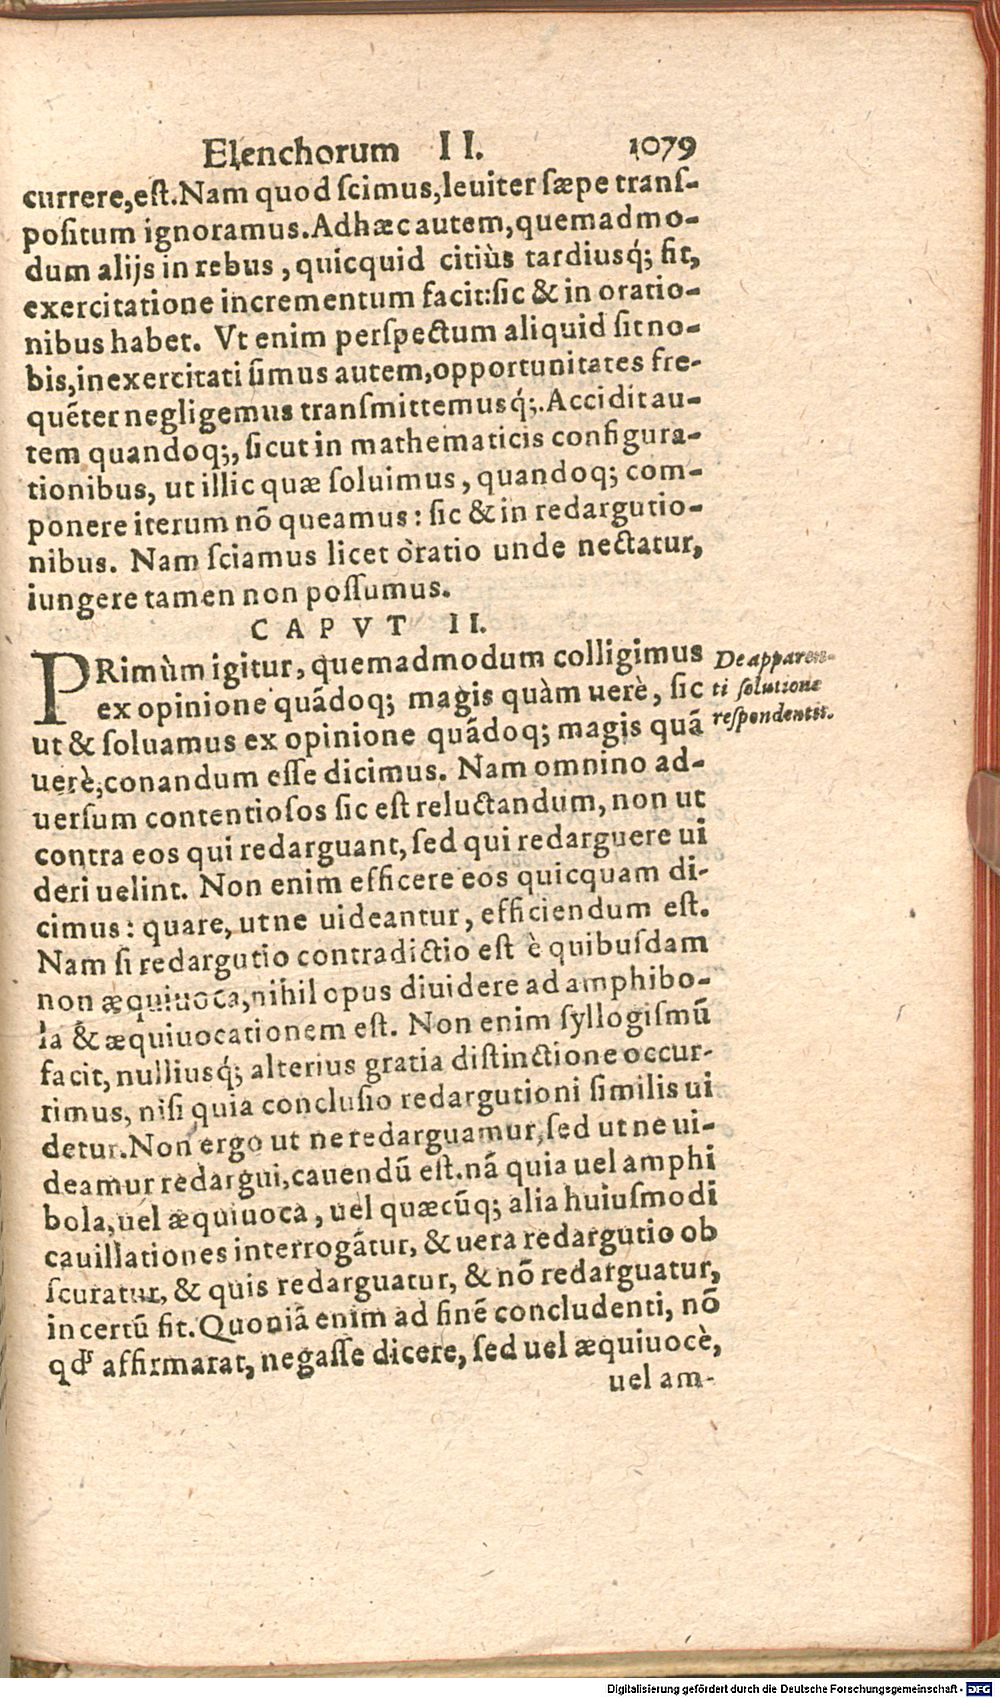 Elenchorum II. 1079
currere,est.Nam quod scimus,leuiter sæpe trans-
positum ignoramus.Adhæc autem,quemadmo-
dum alijs in rebus , quicquid citiùs tardiusq́; fit,
exercitatione incrementum facit:sic & in oratio-
nibus habet. Vt enim perspectum aliquid sit no-
bis,inexercitati simus autem,opportunitates fre-
quẽter negligemus transmittemusq́;.Accidit au-
tem quandoq;, sicut in mathematicis configura-
tionibus, ut illic quæ soluimus , quandoq; com-
ponere iterum nõ queamus : sic & in redargutio-
nibus. Nam sciamus licet òratio unde nectatur,
iungere tamen non possumus.
CAPVT II.
PRimùm igitur, quemadmodum colligimus
ex opinione quãdoq; magis quàm uerè , sic
ut & soluamus ex opinione quãdoq; magis quã
uerè,conandum esse dicimus. Nam omnino ad-
uersum contentiosos sic est reluctandum, non ut
contra eos qui redarguant, sed qui redarguere ui
deri uelint. Non enim efficere eos quicquam di-
cimus : quare, ut ne uideantur , efficiendum est.
Nam si redargutio contradictio est è quibusdam
non æquiuoca,nihil opus diuidere ad amphibo-
la & æquiuocationem est. Non enim syllogismũ
facit, nulliusq́; alterius gratia distinctione occur-
rimus, nisi quia conclusio redargutioni similis ui
detur.Non ergo ut ne redarguamur,sed ut ne ui-
deamur redargui,cauendũ est.nã quia uel amphi
bola,uel æquiuoca , uel quæcũq; alia huiusmodi
cauillationes interrogãtur, & uera redargutio ob
scuratur, & quis redarguatur, & nõ redarguatur,
incertũ fit.Quoniã enim ad finẽ concludenti, nõ
qd' affirmarat, negasse dicere, sed uel æquiuocè,
uel am-
De apparen-
ti solutione
respondentis.
Digitalisierung gefördert durch die Deutsche Forschungsgemeinschaft - DFG